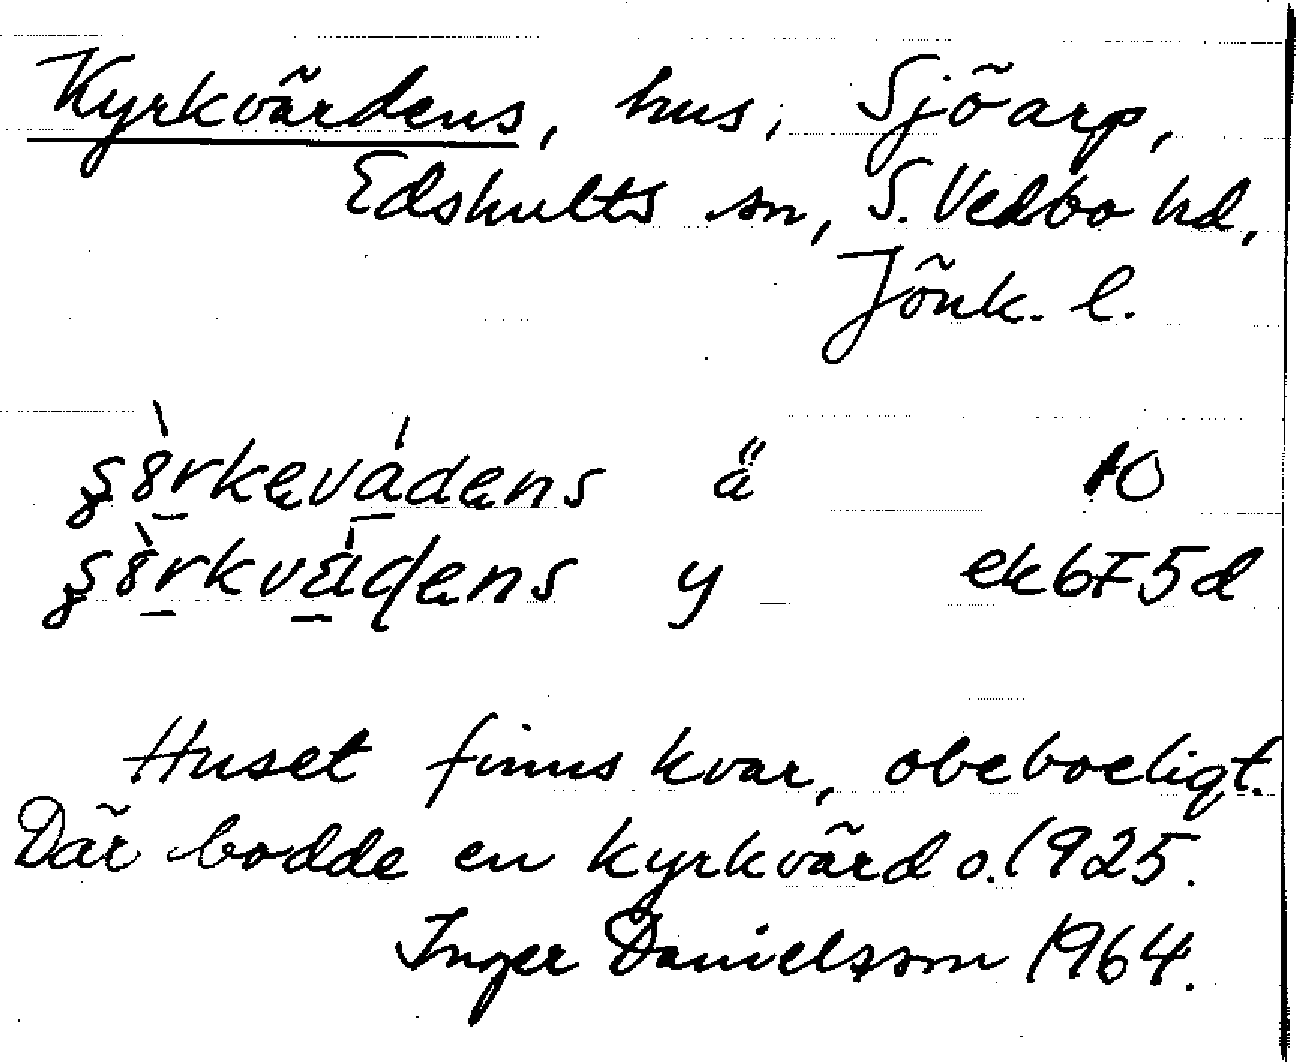 Kyrkvärdens, hus, Sjöarp,
Edshults sn, S. Vedbo hd,
Jönk. l.
ä 10
y ek6F5d
Huset finns kvar, obeboeligt.
Där bodde en kyrkvärd o. 1925.
Inger Danielsson 1964.